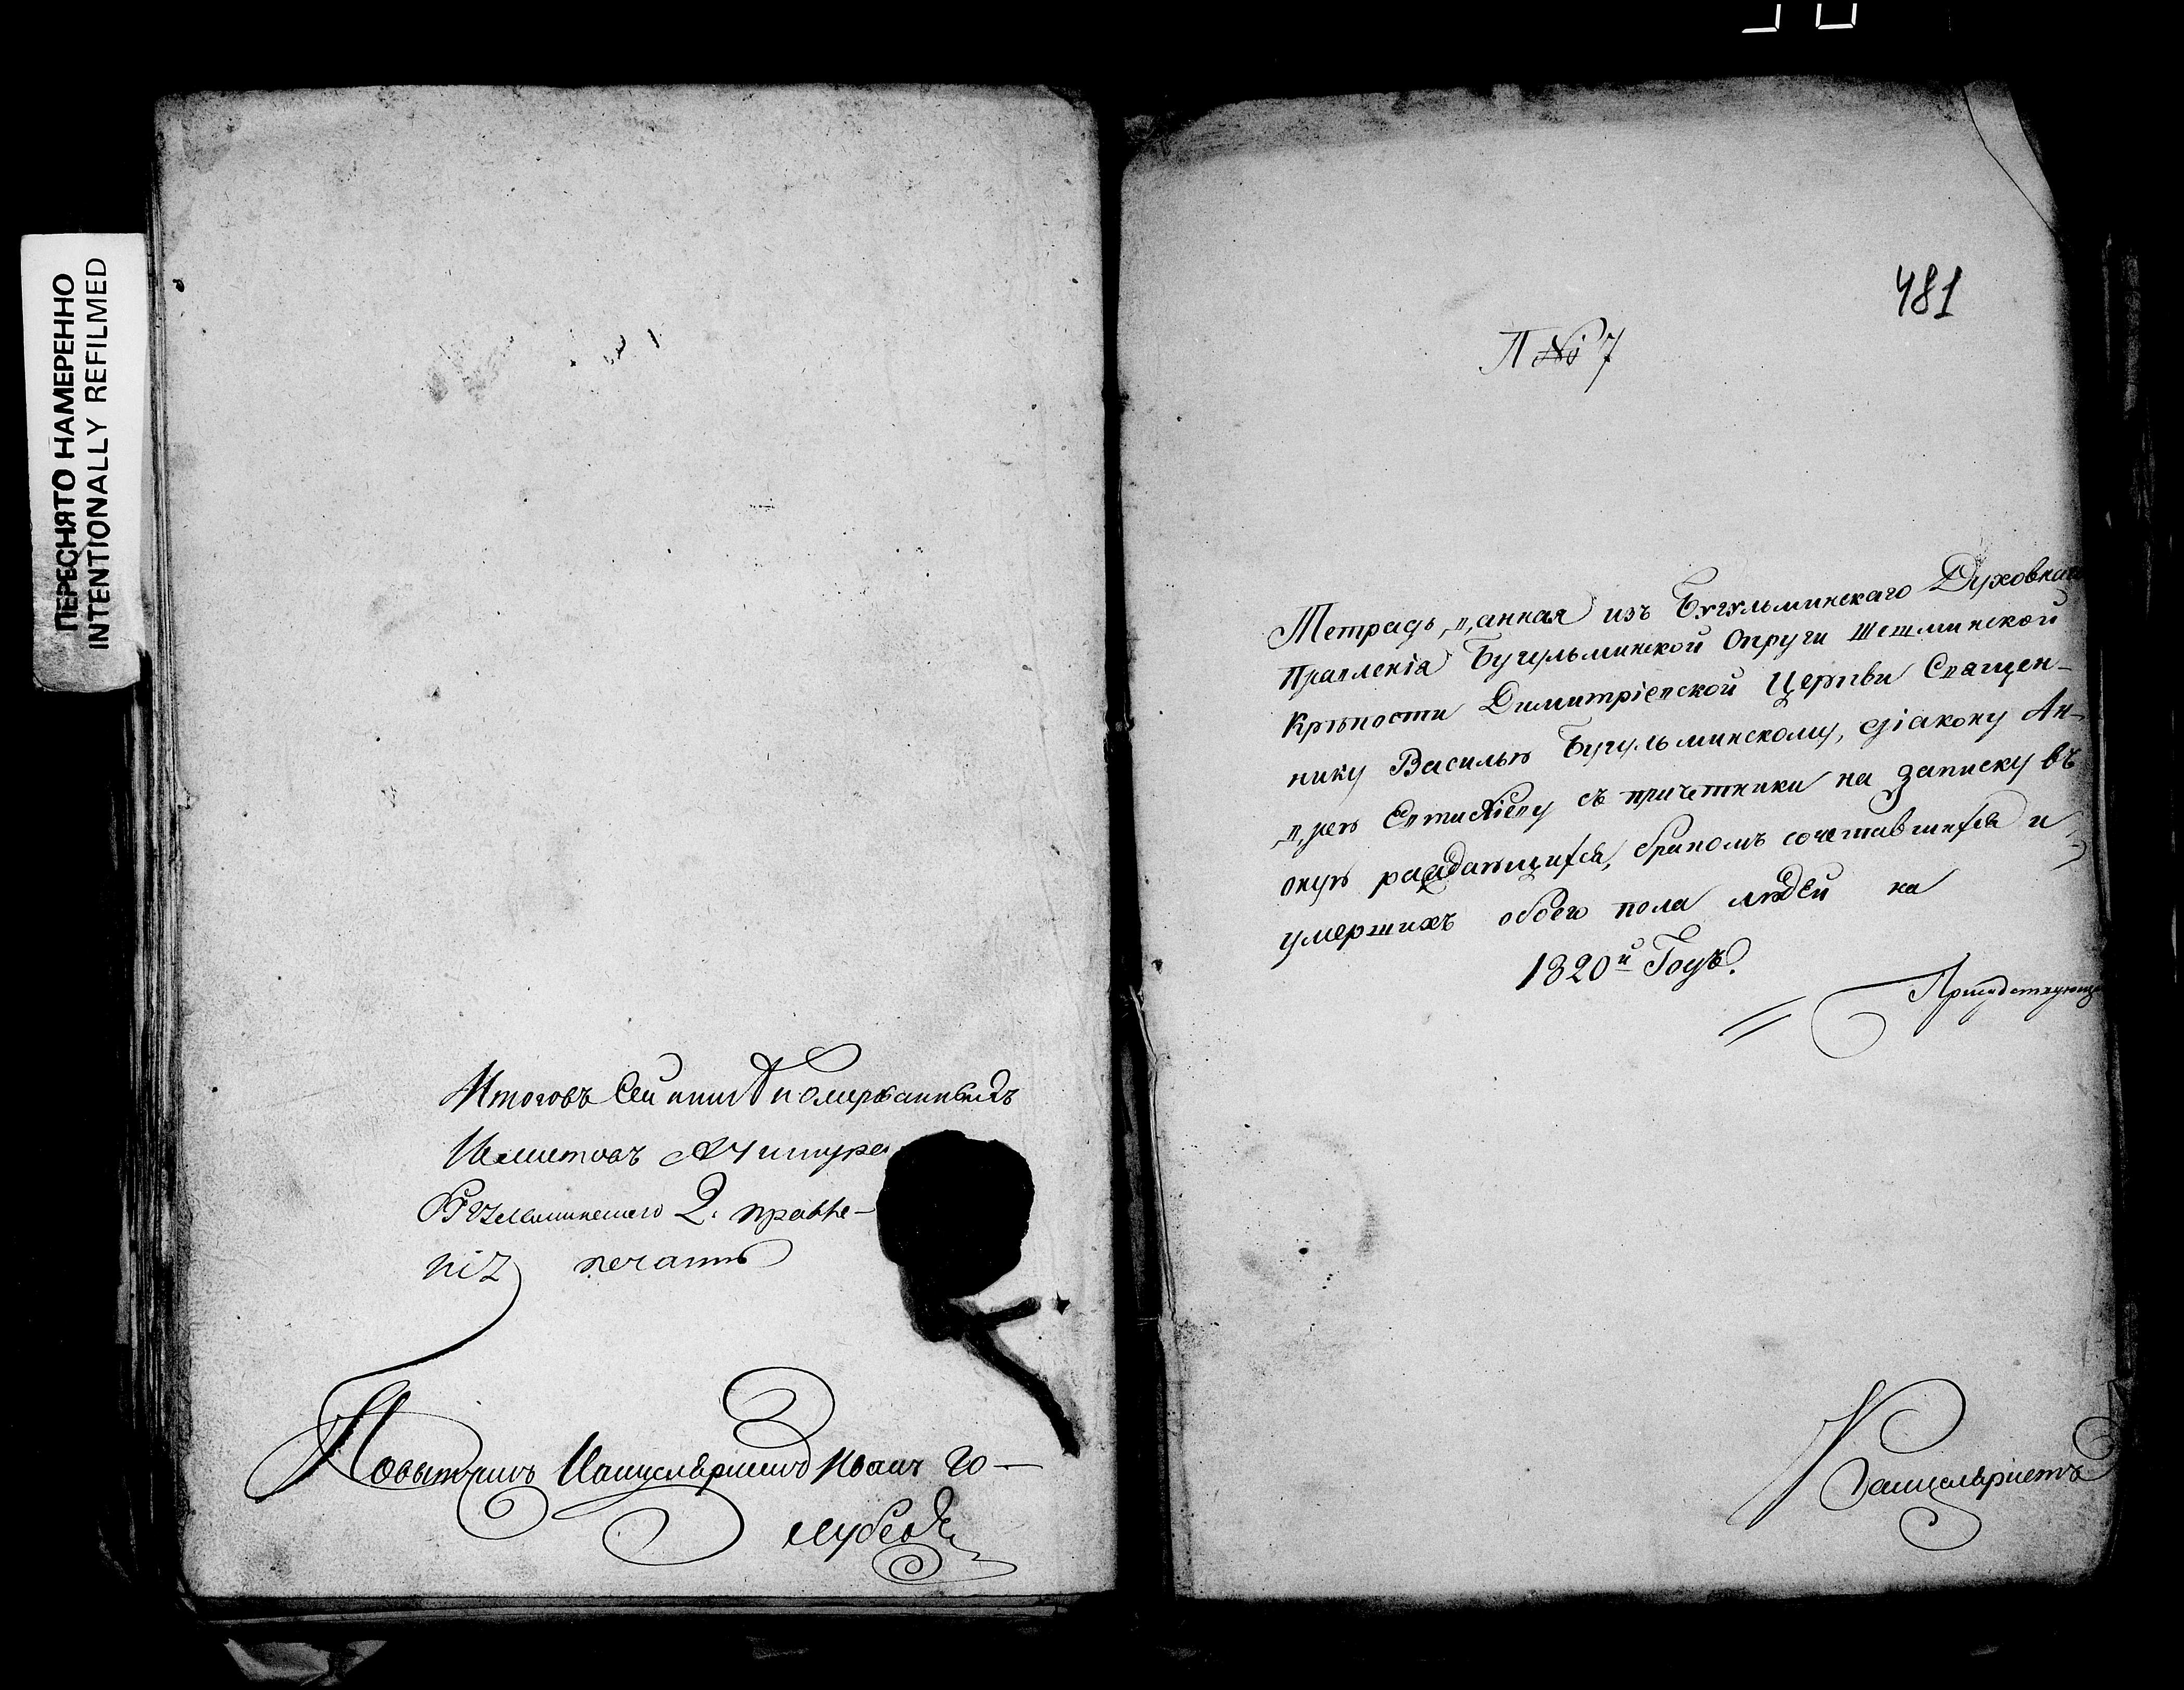 ПЕРЕСНЯТО НАМЕРЕННО
INTENTIONALLY REFILMED
Итоговъ сей
Бугульминскаго Д: правле-
нія печать
Повытчикъ Канцеляристъ Иванъ Го-
лубевъ
481
П № 7
Тетрадь данная изъ Бугульминскаго Духовнаго
Правленія Бугульминской Округи Шешминской
Крѣпости Димитріевской Церкви Священ-
нику Василью Бугульминскому, діакону Ан-
дрею Евтихіеву съ причетники на записку въ
оную раждающихся, бракомъ сочетавшихся и
умершихъ обоего пола людей на
1820й Годъ.
Присудствующій
Канцеляристъ